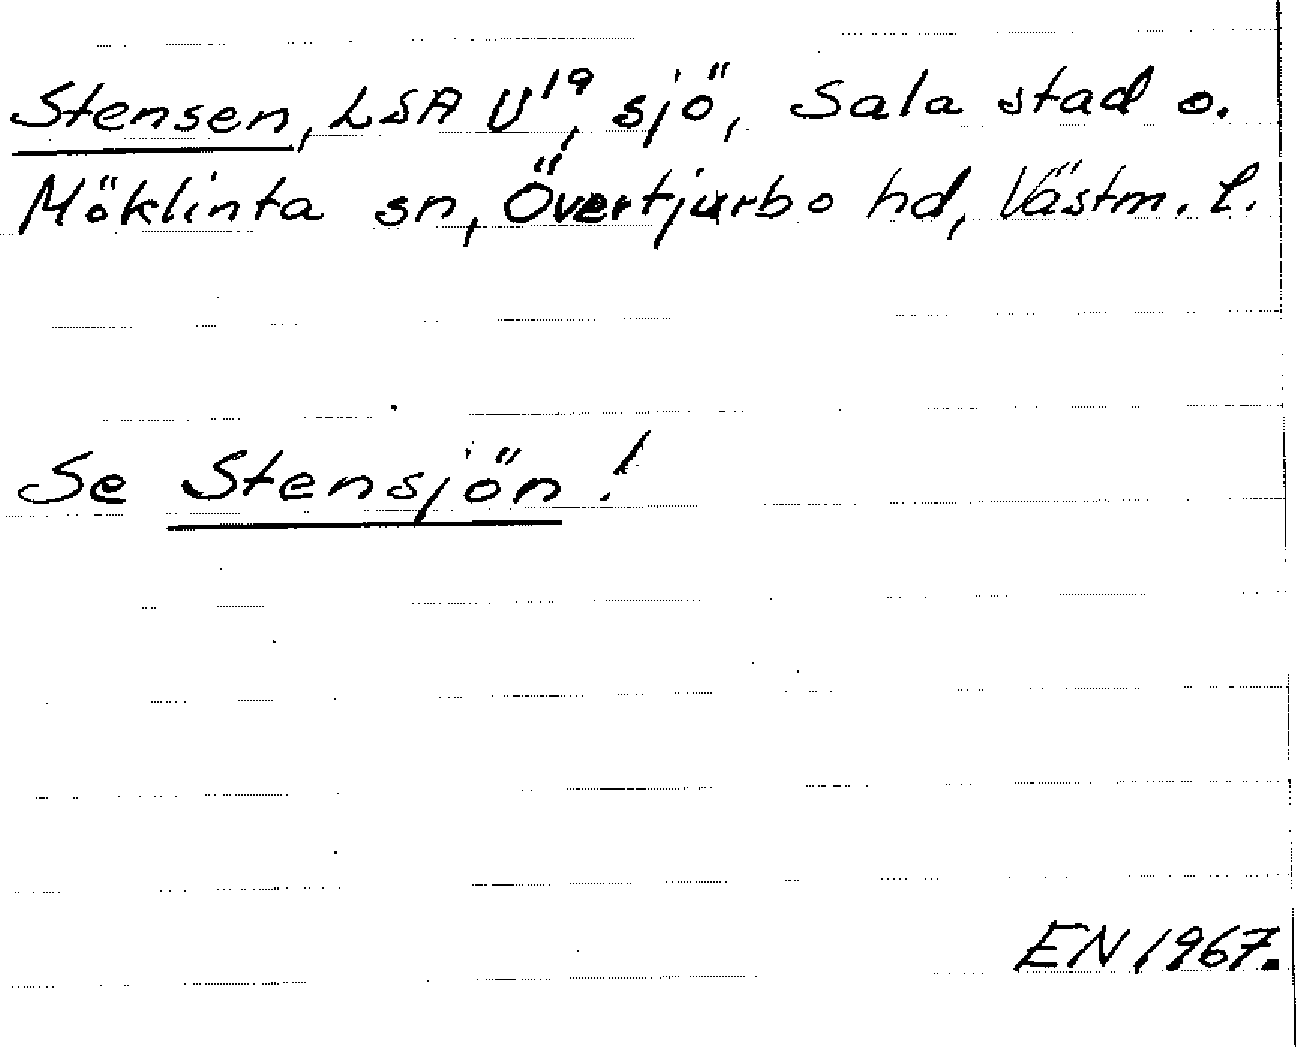 Stensen, LSA U¹⁹, sjö, Sala stad o.
Möklinta sn, Övertjurbo hd, Västm. l.
Se Stensjön!
EN 1967.